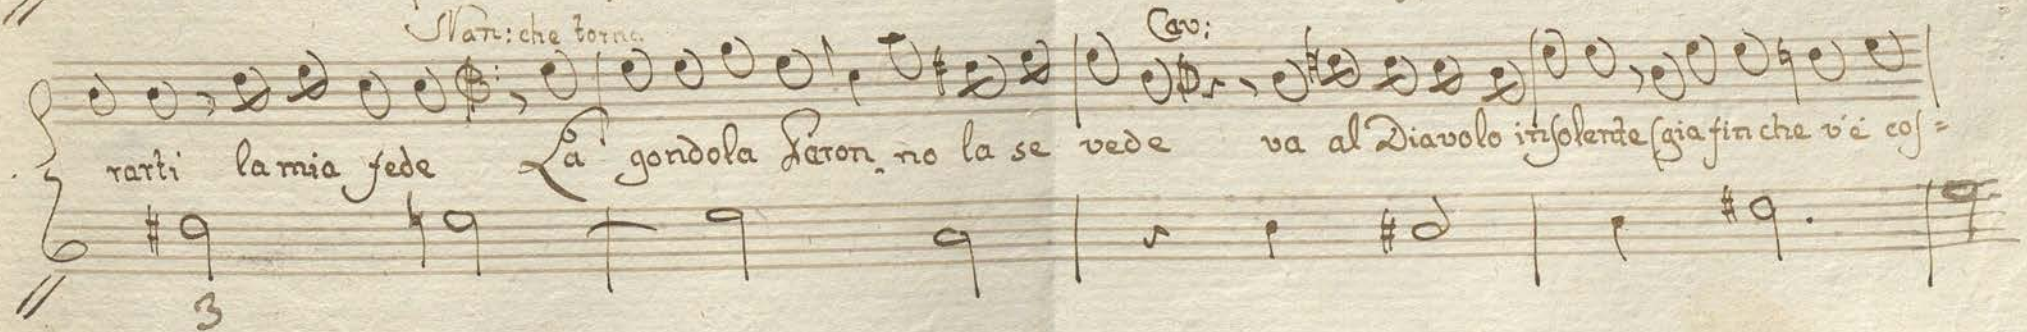 Nan: che torna Cav:
rarti la mia fede La gondola Paron no la se vede va al Diavolo insolente (gia fin che v'é cos=
3